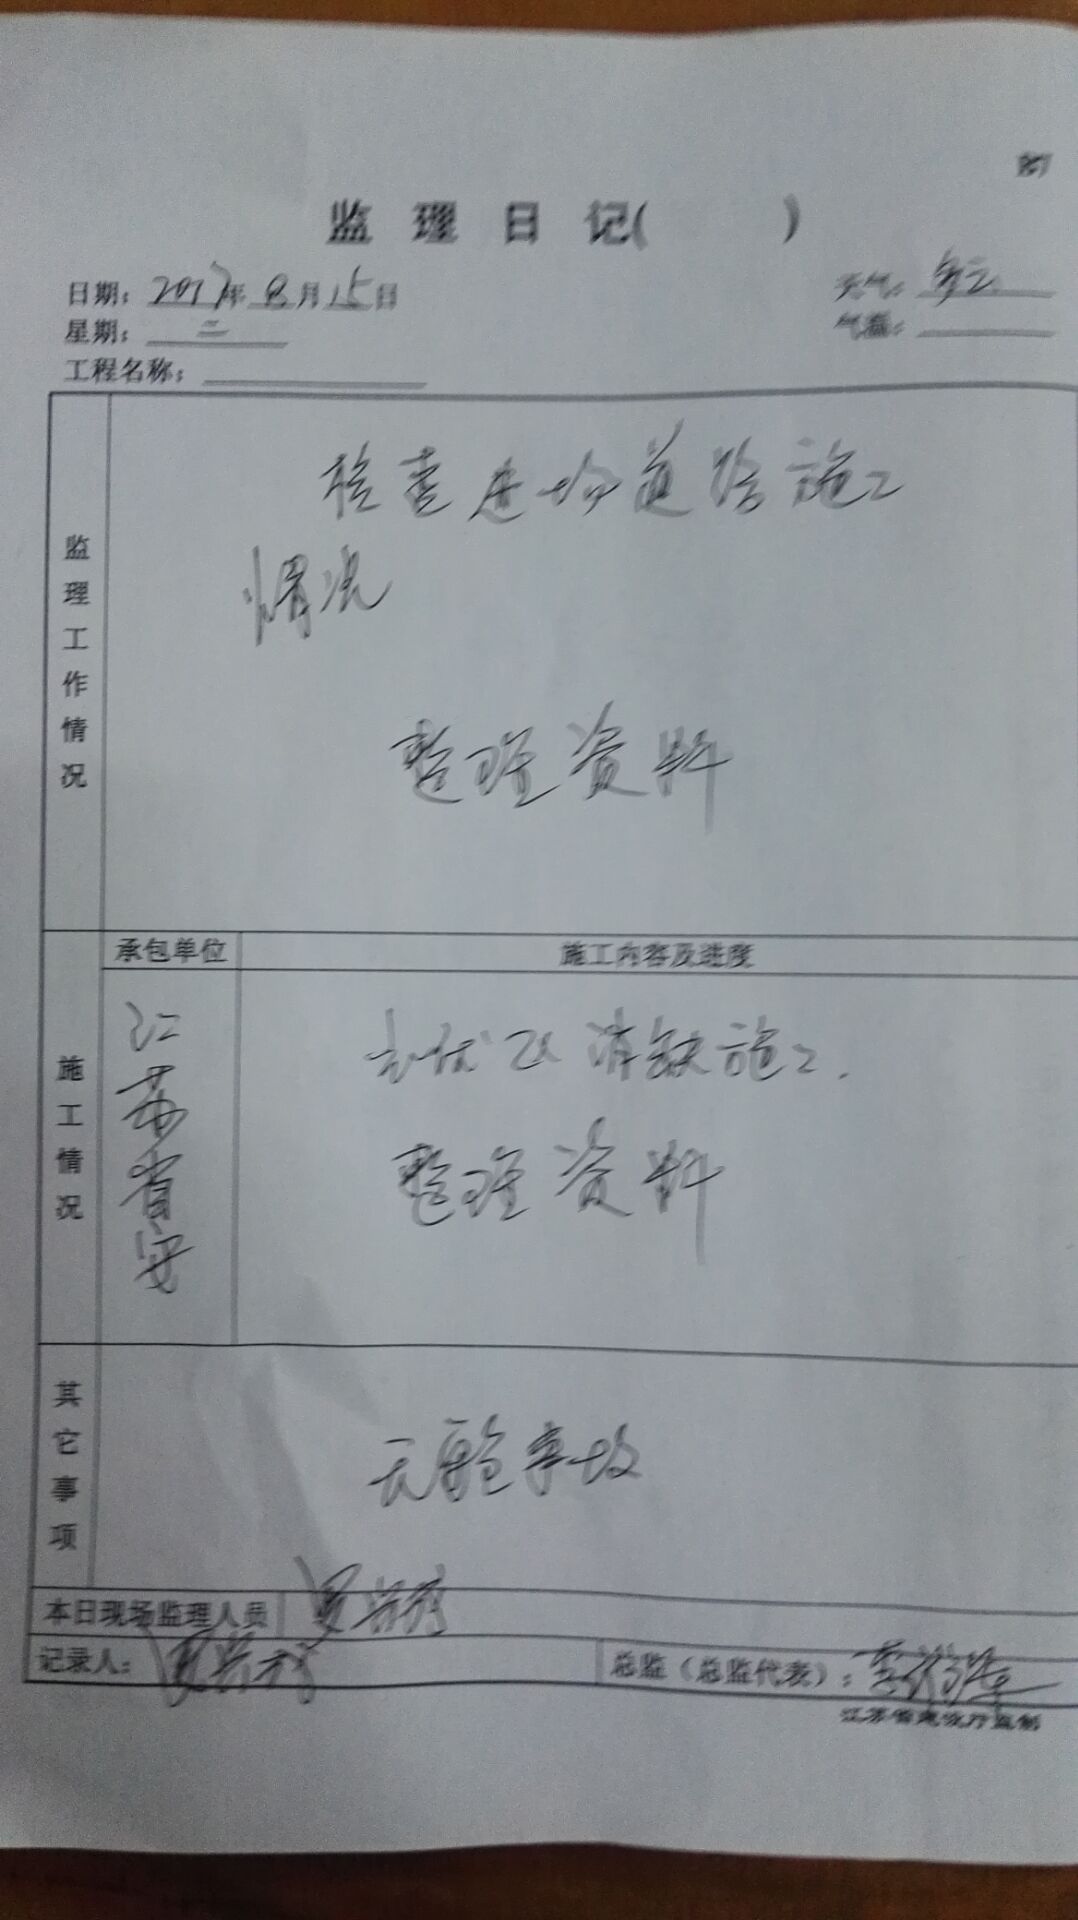 监 理 日 记( )
日期: 2017年 8月15日
天气: 多云
星期: 二
气温:
工程名称:
监理工作情况
检查进场道路施工
情况
整理资料
施工情况
承包单位
施工内容及进度
江苏省安
光伏区消缺施工.
整理资料
其它事项
无质量事故
本日现场监理人员
记录人:
总监（总监代表）:
江苏省建设厅监制